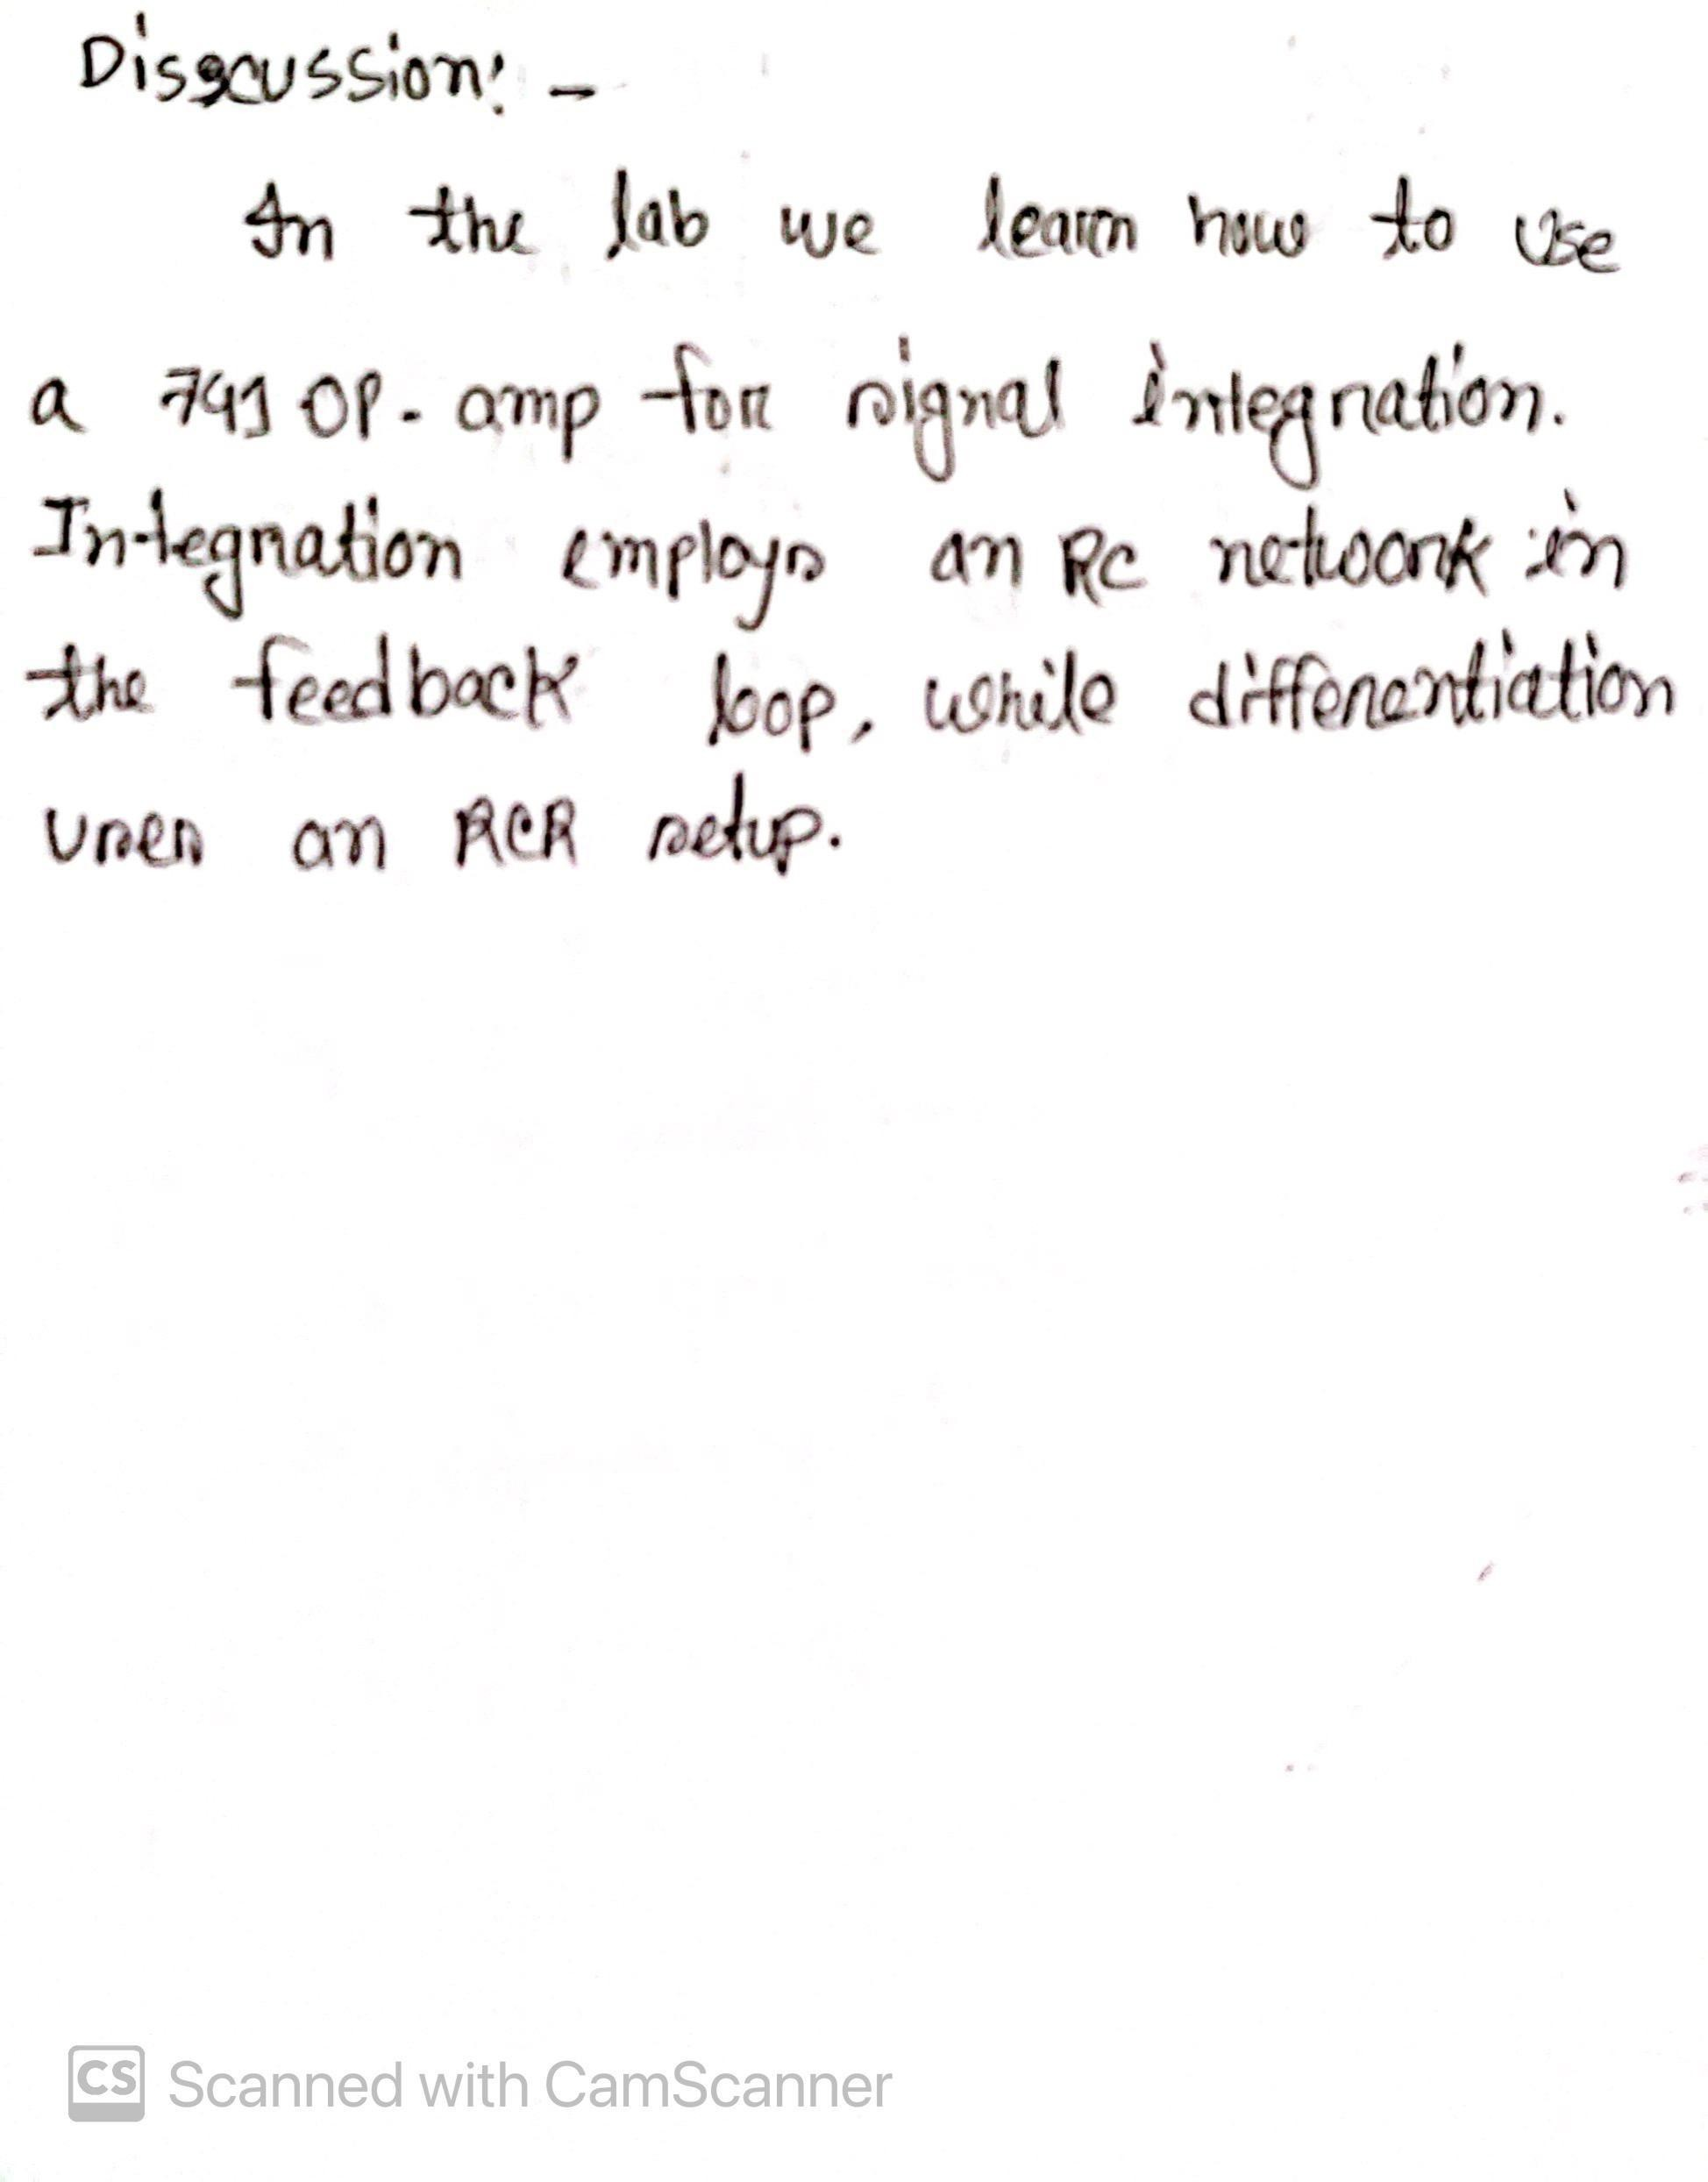 Disscussion: -
In the lab we learn how to use
a 741 OP-amp for signal integration.
Integration employs an RC network in
the feedback loop, while differentiation
uses an RCR setup.
CS Scanned with CamScanner